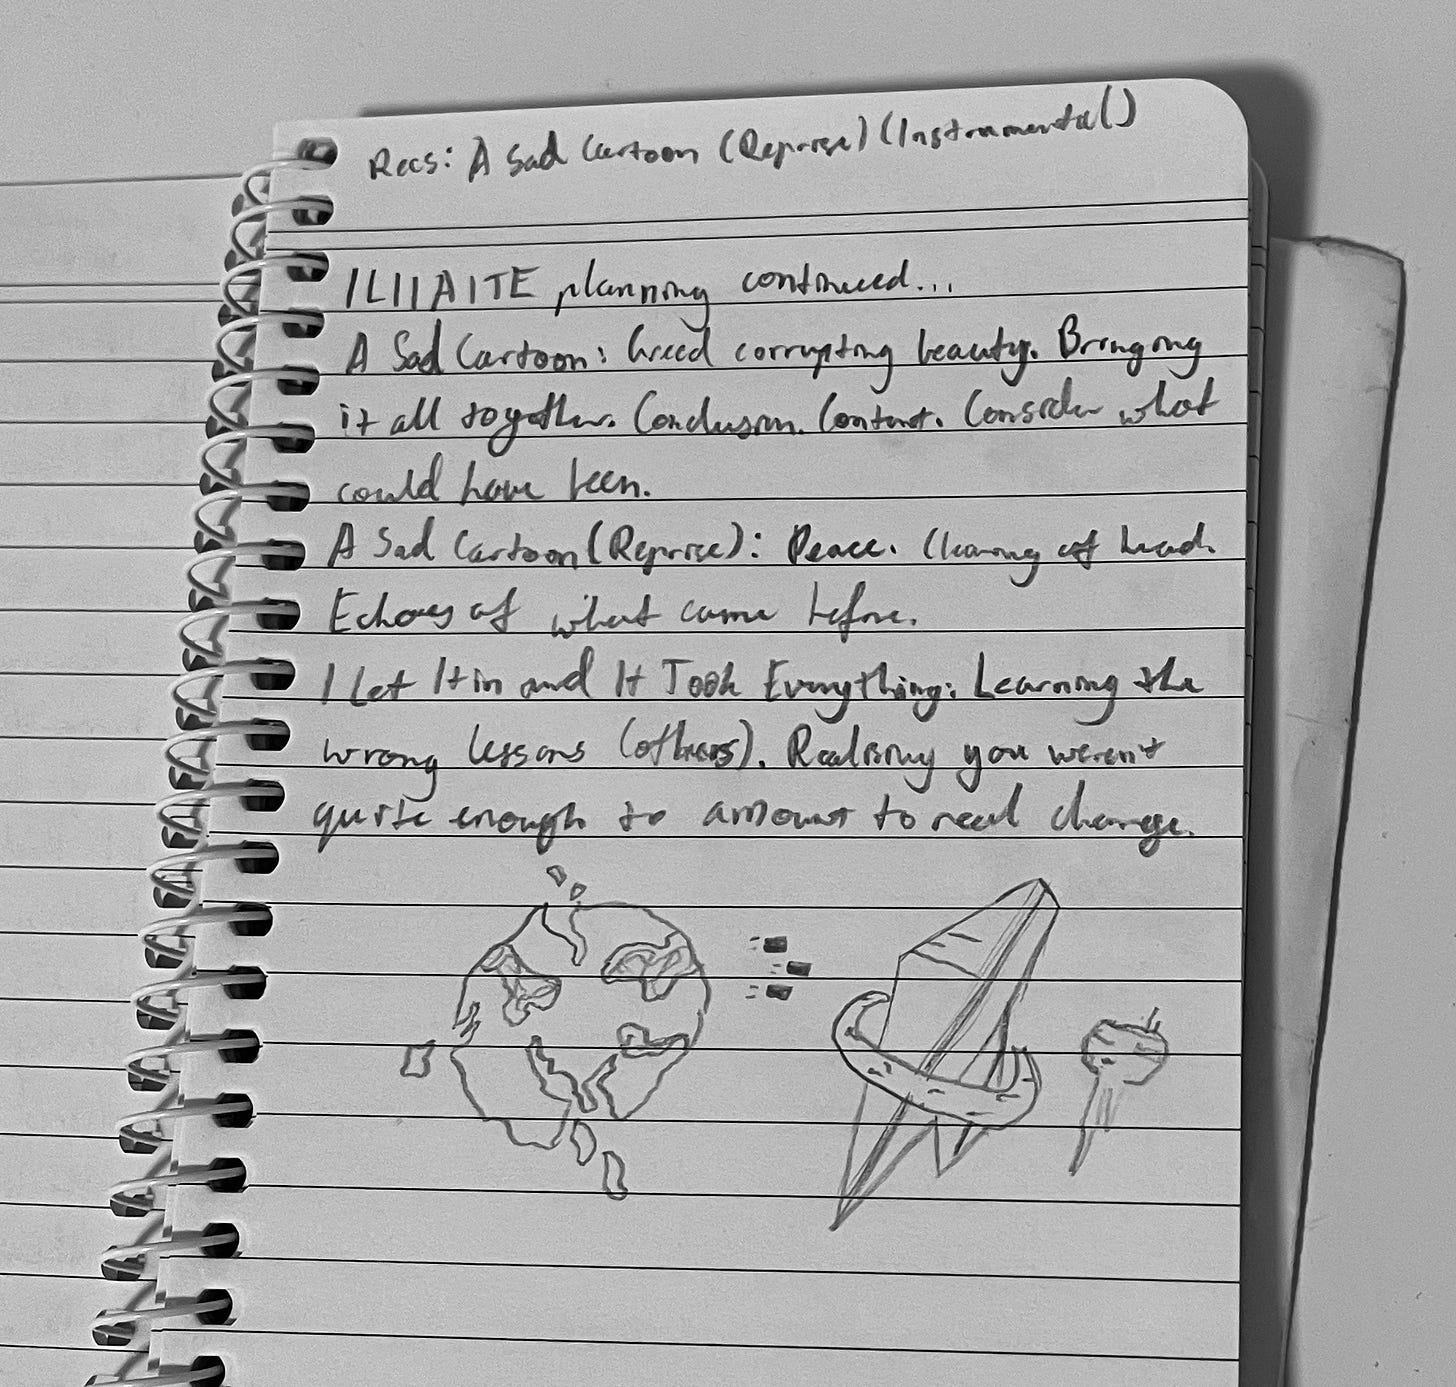 Recs: A Sad Cartoon (Reprise) (Instrumental)
ILIIAITE planning continued...
A Sad Cartoon: Greed corrupting beauty. Bringing
it all together. Conclusion. Content. Consider what
could have been.
A Sad Cartoon (Reprise): Peace. Clearing of head.
Echoes of what came before.
I Let It in and It Took Everything: Learning the
wrong lessons (others). Realising you weren't
quite enough to amount to real change.